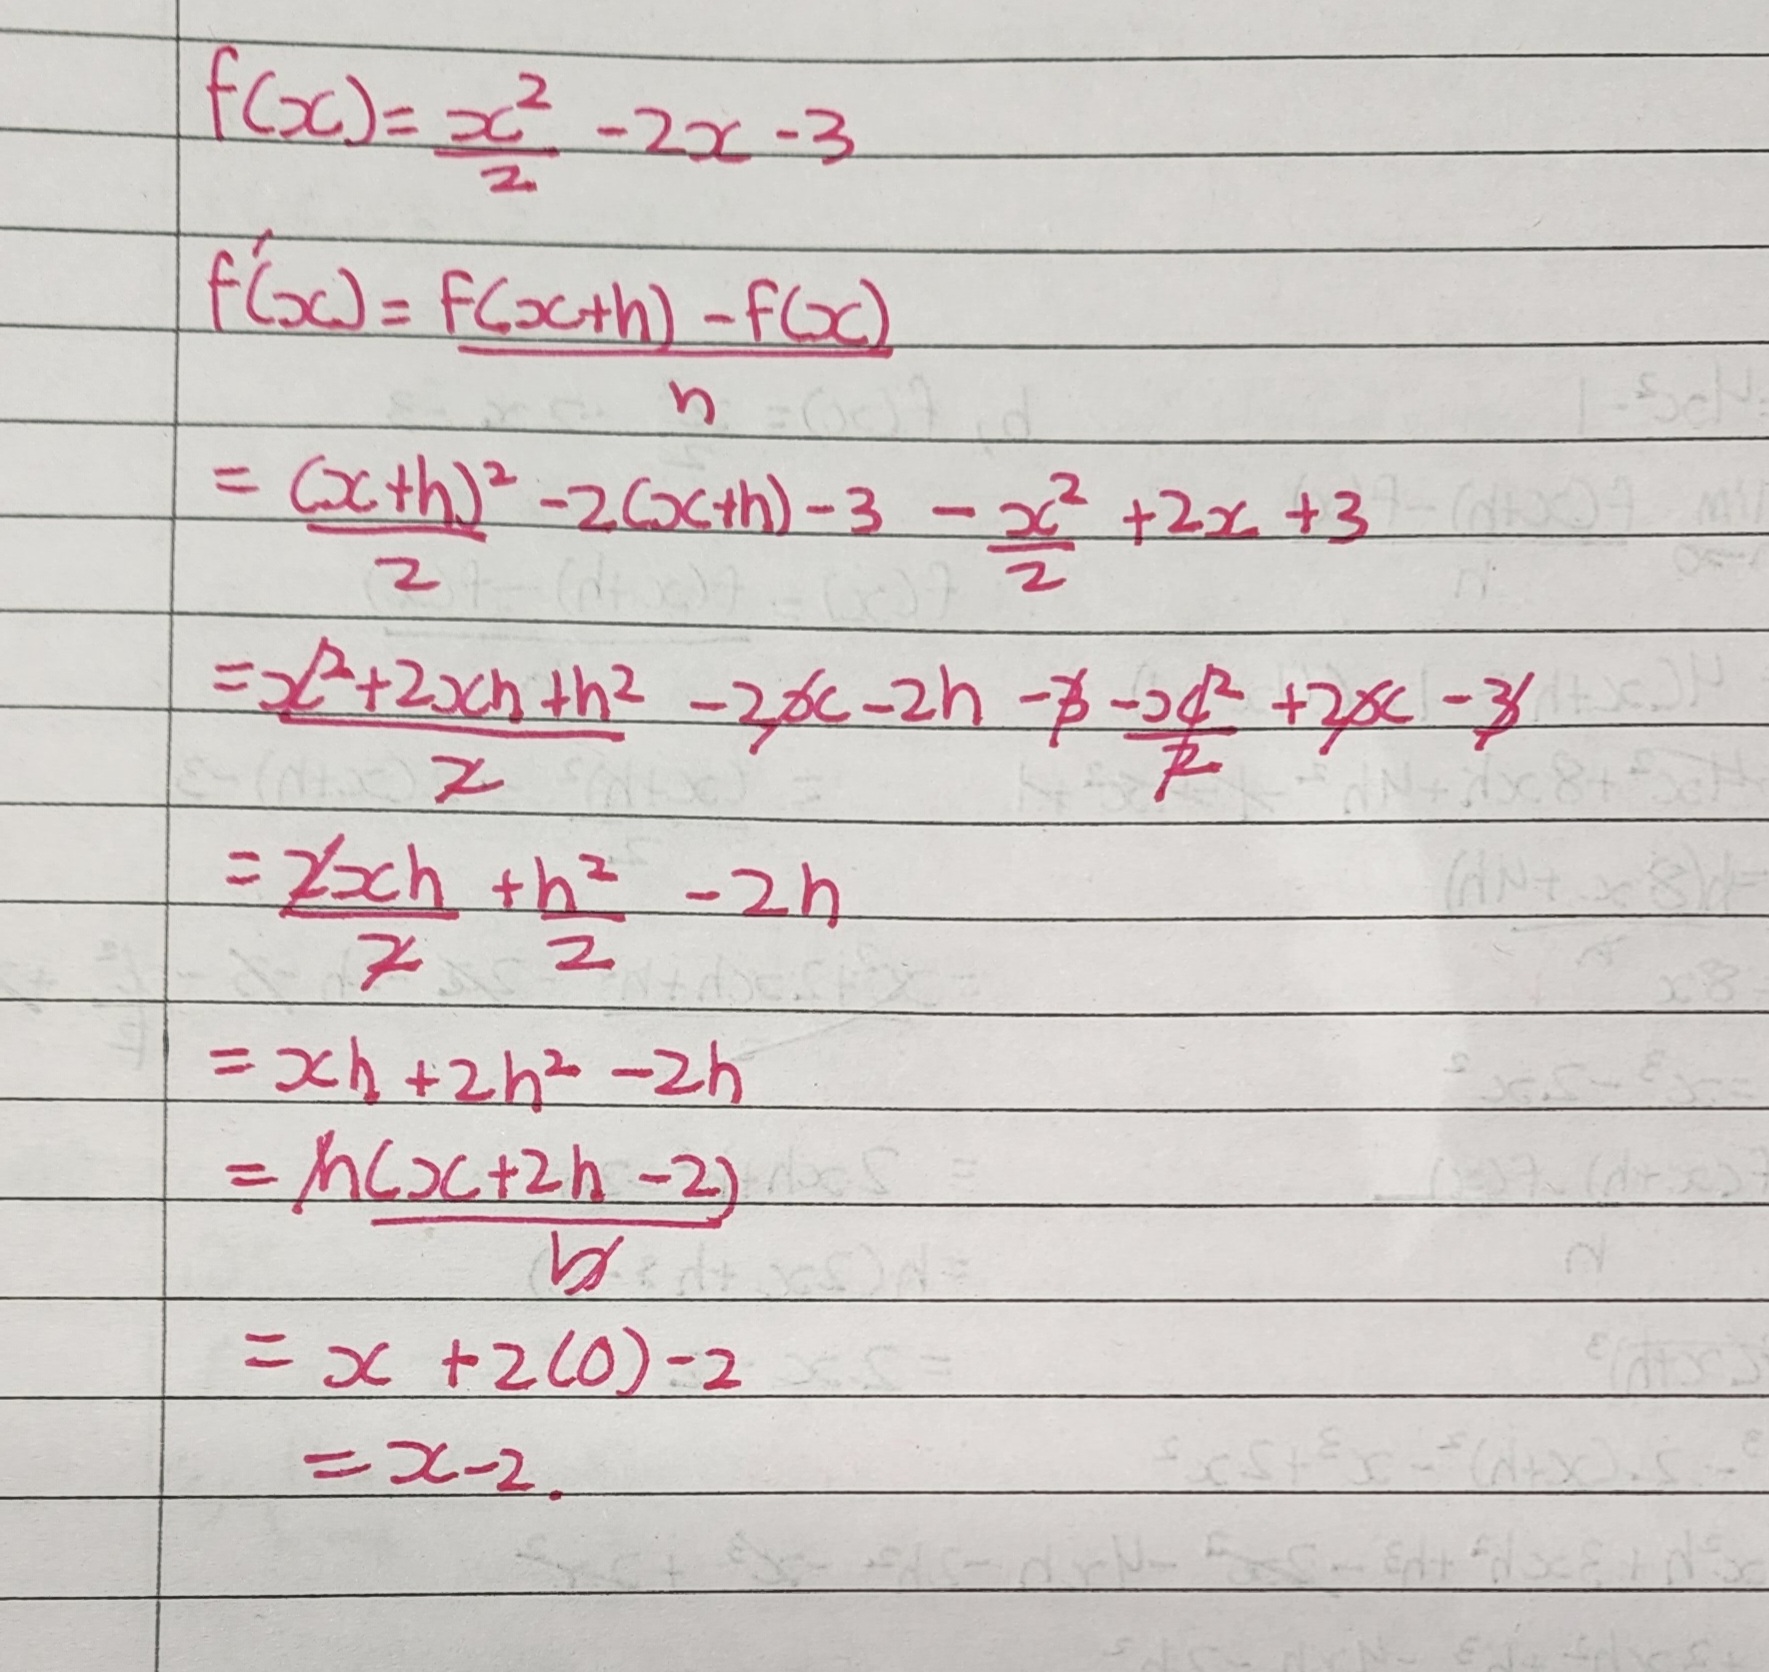 f(x) = x²/2 - 2x - 3
f'(x) = f(x+h) - f(x) / h
= (x+h)²/2 - 2(x+h) - 3 - x²/2 + 2x + 3
= x² + 2xh + h² / 2 - 2x - 2h - 3 - x²/2 + 2x - 3
= 2xh/2 + h²/2 - 2h
= xh + 2h² - 2h
= h(x + 2h - 2) / h
= x + 2(0) - 2
= x - 2.